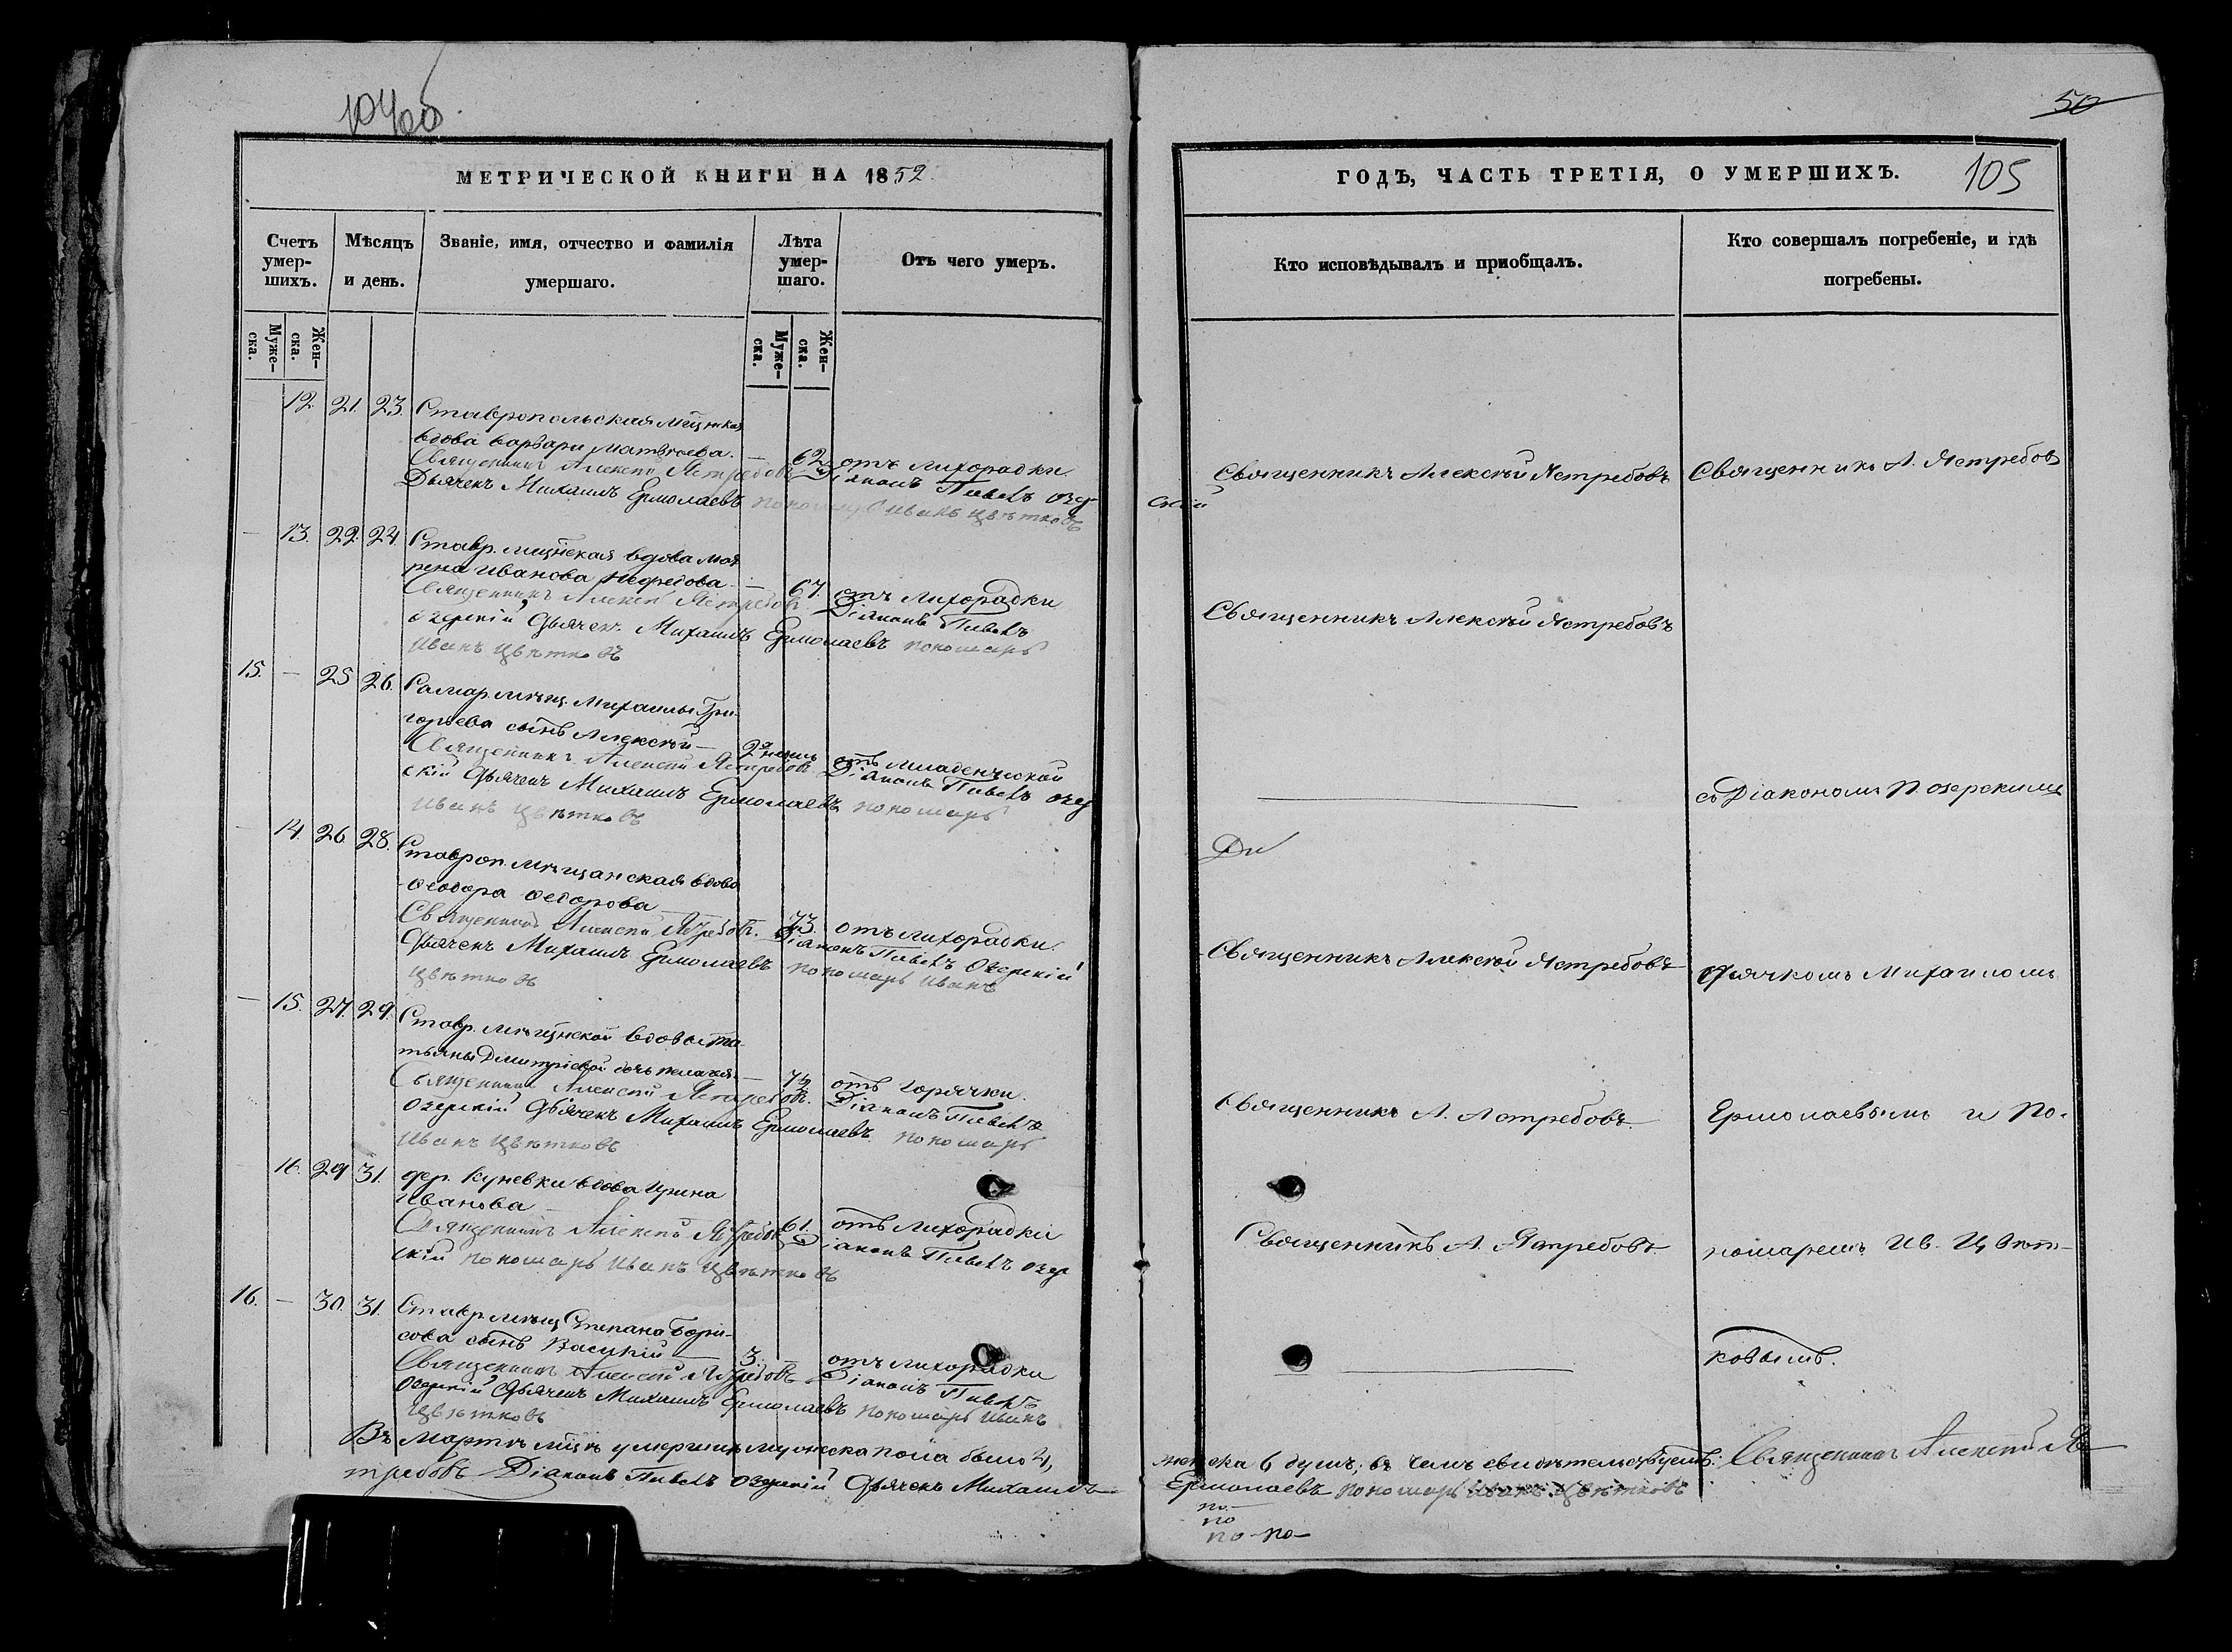 50
МЕТРИЧЕСКОЙ КНИГИ НА 1852.
ГОДЪ, ЧАСТЬ ТРЕТІЯ, О УМЕРШИХЪ.
105
Счетъ умер-шихъ.
Мѣсяцъ и день.
Званіе, имя, отчество и фамилія умершаго.
Лѣта умер-шаго.
Отъ чего умеръ.
Кто исповѣдывалъ и приобщалъ.
Кто совершалъ погребеніе, и гдѣ погребены.
Муже-ска.
Жен-ска.
Муже-ска.
Жен-ска.
12. 21. 23. Ставропольская
вдова Варвара Матвѣева. — 62 отъ лихорадки Священникъ Алексѣй Ястребовъ Священникъ А. Ястребовъ
Священникъ Алексѣй Ястребовъ Діаконъ Павелъ Озер
Дьячекъ Михаилъ Ермолаевъ пономарь Иванъ Цвѣтковъ
скій
— 13. 22. 24. Ставр. вдова
Иванова — 67. отъ лихорадки Священникъ Алексѣй Ястребовъ
Священникъ Алексѣй Ястребовъ Діаконъ Павелъ
Озерскій Дьячекъ Михаилъ Ермолаевъ пономарь
Иванъ Цвѣтковъ
15. — 25 26. Самар. мѣщ. Михаилы Гри-
горьева сынъ Алексѣй —
отъ младенческой
Священникъ Алексѣй Ястребовъ Діаконъ Павелъ Озер
скій Дьячекъ Михаилъ Ермолаевъ пономарь
Иванъ Цвѣтковъ
съ Діакономъ П. Озерскимъ
14. 26. 28. Ставроп. мѣщанская вдова
Ѳеодора Ѳедорова
73. отъ лихорадки. Священникъ Алексѣй Ястребовъ Дьячкомъ Михаиломъ
Священникъ Алексѣй Ястребовъ. Діаконъ Павелъ Озерскій
Дьячекъ Михаилъ Ермолаевъ пономарь Иванъ
Цвѣтковъ
— 15. 27. 29. Ставр. вдовы Та-
тьяны Димитріевой дочь Пелагея —
отъ горячки. Священникъ А. Ястребовъ. Ермолаевымъ и По-
Священникъ Алексѣй Ястребовъ. Діаконъ Павелъ
Озерскій Дьячекъ Михаилъ Ермолаевъ пономарь
Иванъ Цвѣтковъ
16. 29 31. дер. Куневки вдова Ирина
Иванова
61. отъ лихорадки Священникъ А. Ястребовъ номаремъ Ив. Цвѣт-
Священникъ Алексѣй Ястребовъ Діаконъ Павелъ Озер
скій пономарь Иванъ Цвѣтковъ
16. — 30. 31. Ставр. мѣщ. Степана Бори-
сова сынъ Василій — 3. — отъ лихорадки
ковымъ.
Священникъ Алексѣй Ястребовъ Діаконъ Павелъ
Озерскій Дьячекъ Михаилъ Ермолаевъ пономарь Иванъ
Цвѣтковъ
Въ Мартѣ мцѣ умершихъ мужеска пола было 4, женска 6 душъ; въ чемъ свидѣтельствуемъ: Священникъ Алексѣй Яс
требовъ Діаконъ Павелъ Озерскій Дьячекъ Михаилъ Ермолаевъ пономарь Иванъ Цвѣтковъ
по-
по
по-по-